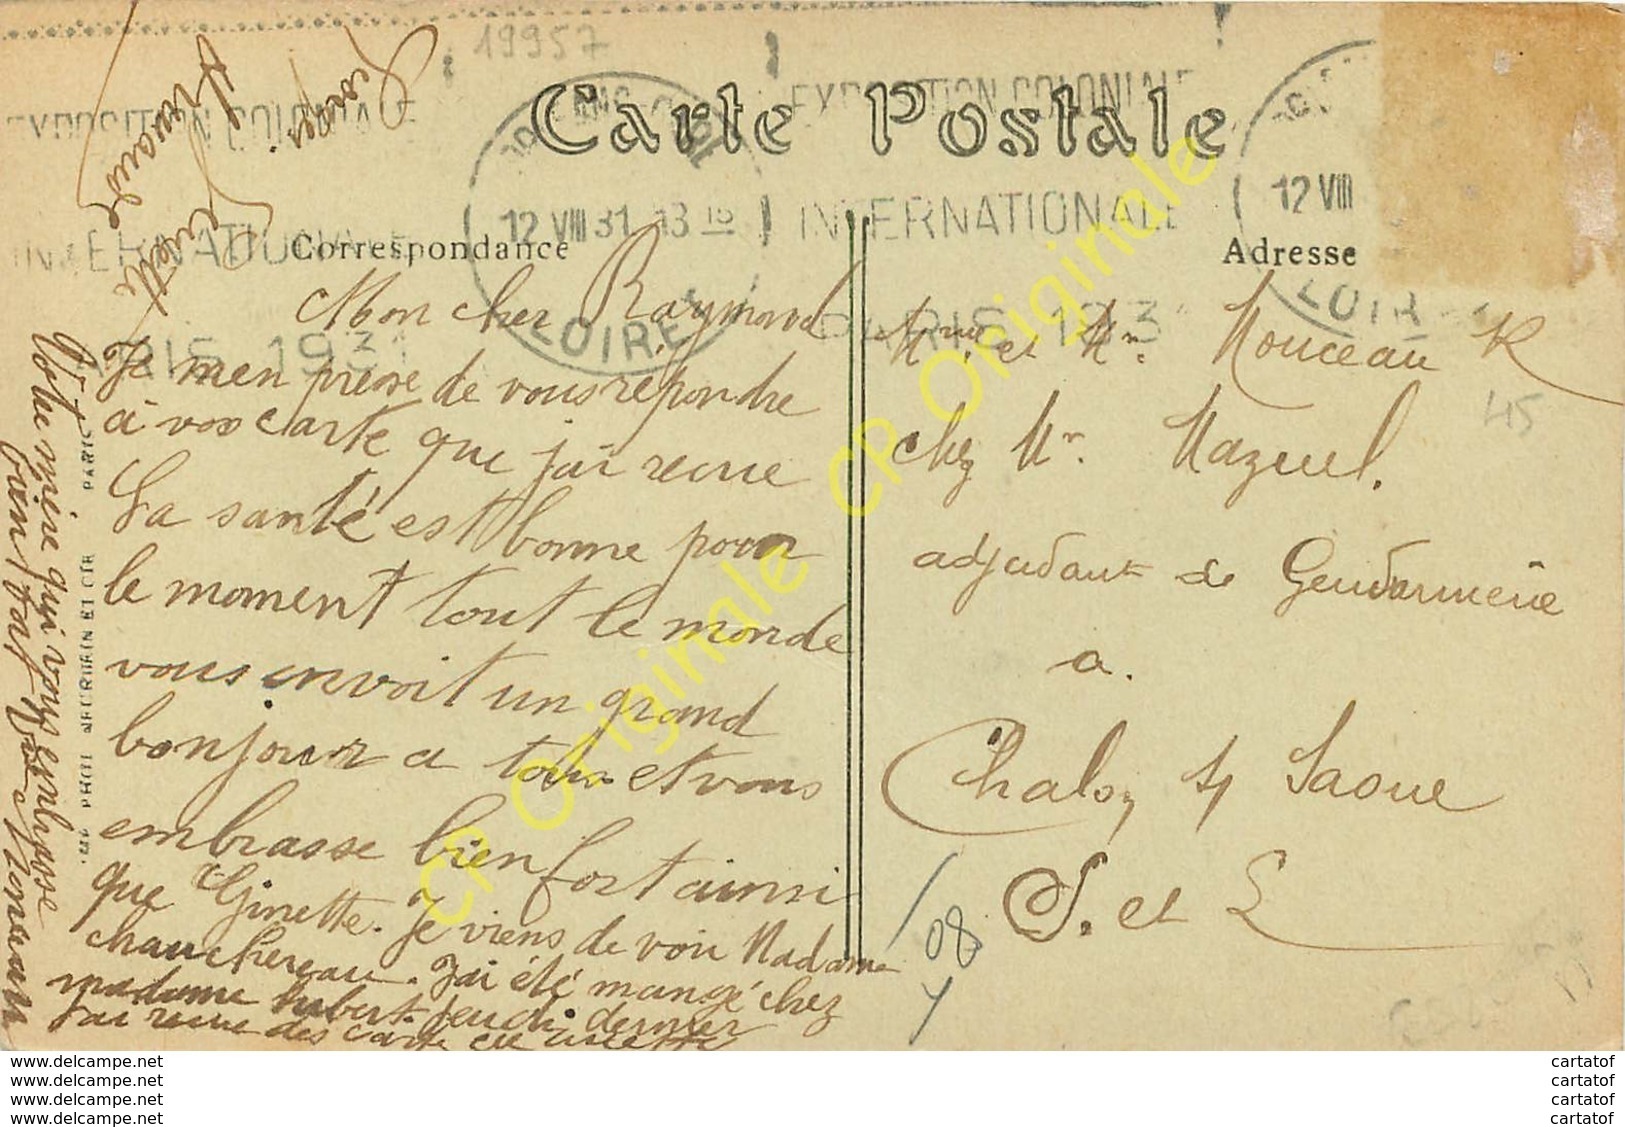 19957
Carte Postale
EXPOSITION COLONIALE
INTERNATIONALE
PARIS 1931
12 VIII 31 13 15
LOIRET
EXPOSITION COLONIALE
INTERNATIONALE
PARIS 193
12 VIII
LOIR
Correspondance
Mon cher Raymond
Je men prese de vous répondre
à vos carte que j'ai recue
La santé est bonne pour
le moment tout le monde
vous envoit un grand
bonjour a tous et vous
embrasse bien fort ainsi
que Ginette. Je viens de voir Madame
chauchereau. J'ai été mangé chez
madame hubert jeudi dernier
J'ai recue des carte de
Votre mère qui vous embrasse
bien fort Monceau
PARIS
Adresse
Mme et Mr. Monceau R
chez Mr. Mazuel.
adjudant de Gendarmerie
a.
Chalon s/ Saone
S. et L
45
08
CP Originale CP Originale CP Originale
www.delcampe.net
www.delcampe.net
www.delcampe.net
www.delcampe.net
cartatof
cartatof
cartatof
cartatof